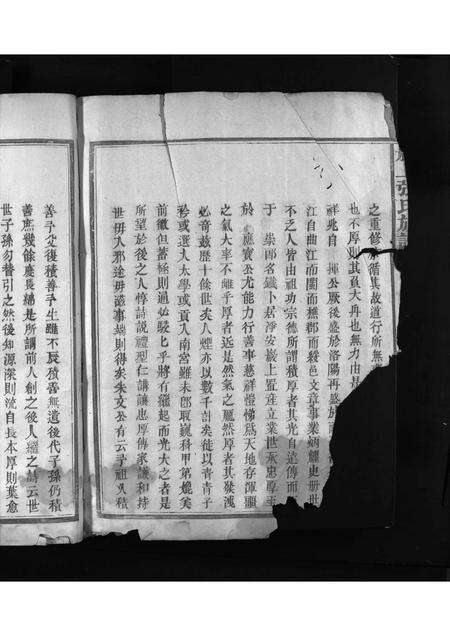 張氏族譜
之重修 循其故道行所無
也不厚則其負大舟也無力由是
祥死自 揮公厥後盛於洛陽再盛於
江自曲江而閩而撫郡而義邑文章事業炳耀史册世
不乏人皆由祖功宗德所謂積厚者其光自遠傳而
于 崇郡名鐵卜居淨安嶺上置產立業世永忠厚至
於 應寶公尤能力行善事慈祥愷悌為天地存渾龐
之氣大率不離乎厚者近是然氣之雁然厚者其發洩
必奇茲歷十餘世矣人煙亦以數千計矣徒以青青子
衿或選入太學或貢入南宮雖未即取巍科甲第媿矣
前徽但蓄極則通必駸乎將有繼起而光大之者是
所望於後之人惇詩說禮型仁講讓忠厚傳家謙和持
世毋入邪途毋滋事端則得矣朱文公有云子祖父積
善子父復積善子生雖不辰積善無道後代子孫仍積
善庶幾餘慶長綿是所謂前人創之後人繼之詩云世
世子孫勿替引之然後知源深則流自長本厚則葉愈